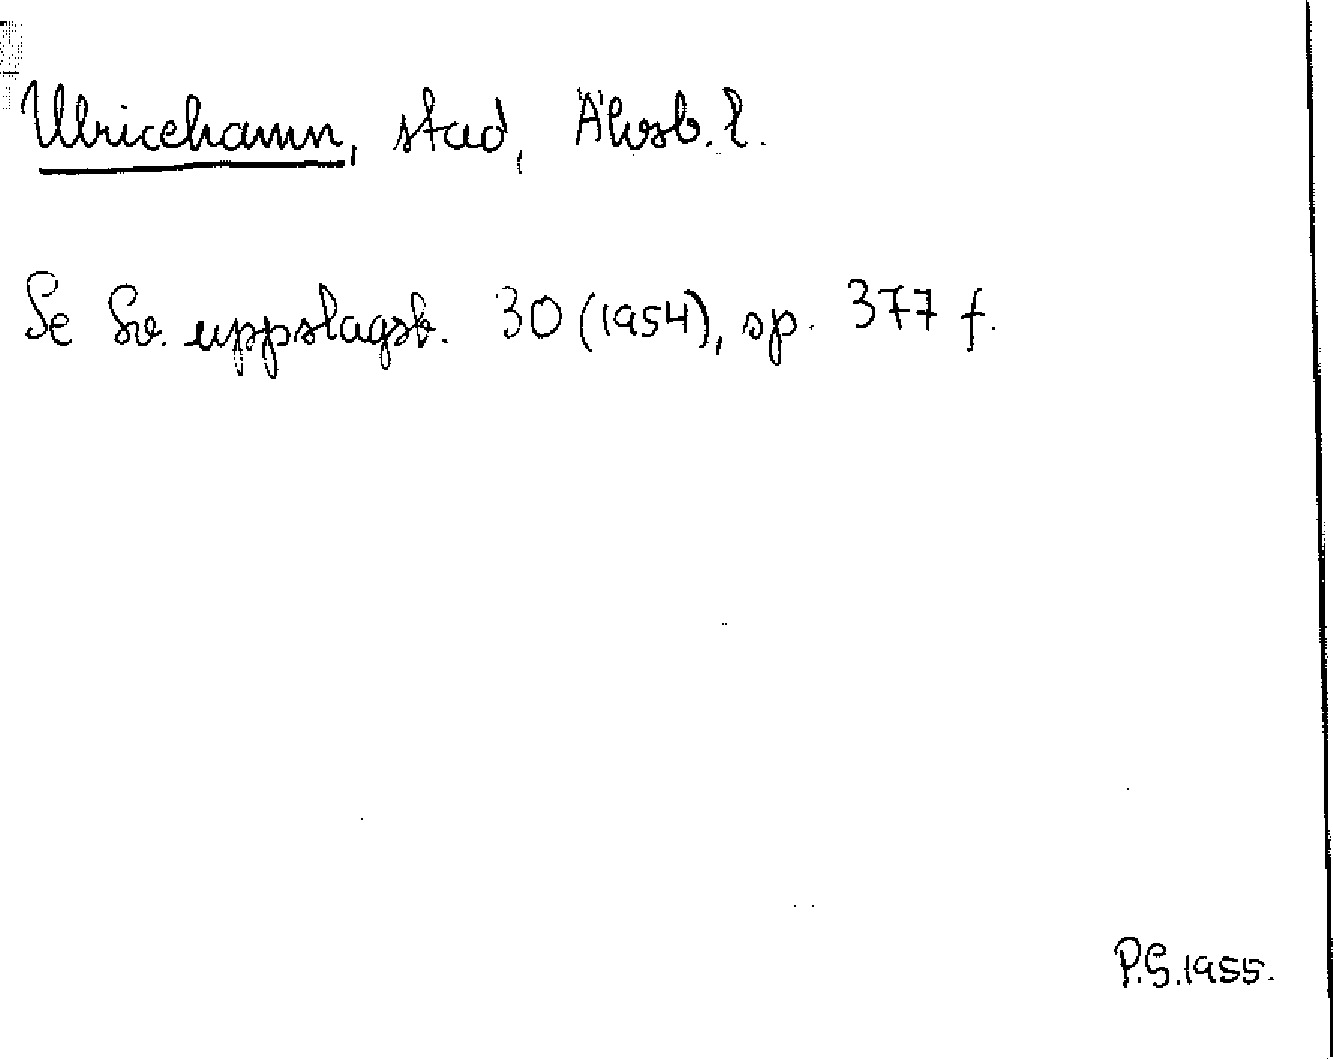 Ulricehamn, stad, Älvsb. l.
Se Sv. uppslagsb. 30 (1954), sp. 377 f.
P.G. 1955.